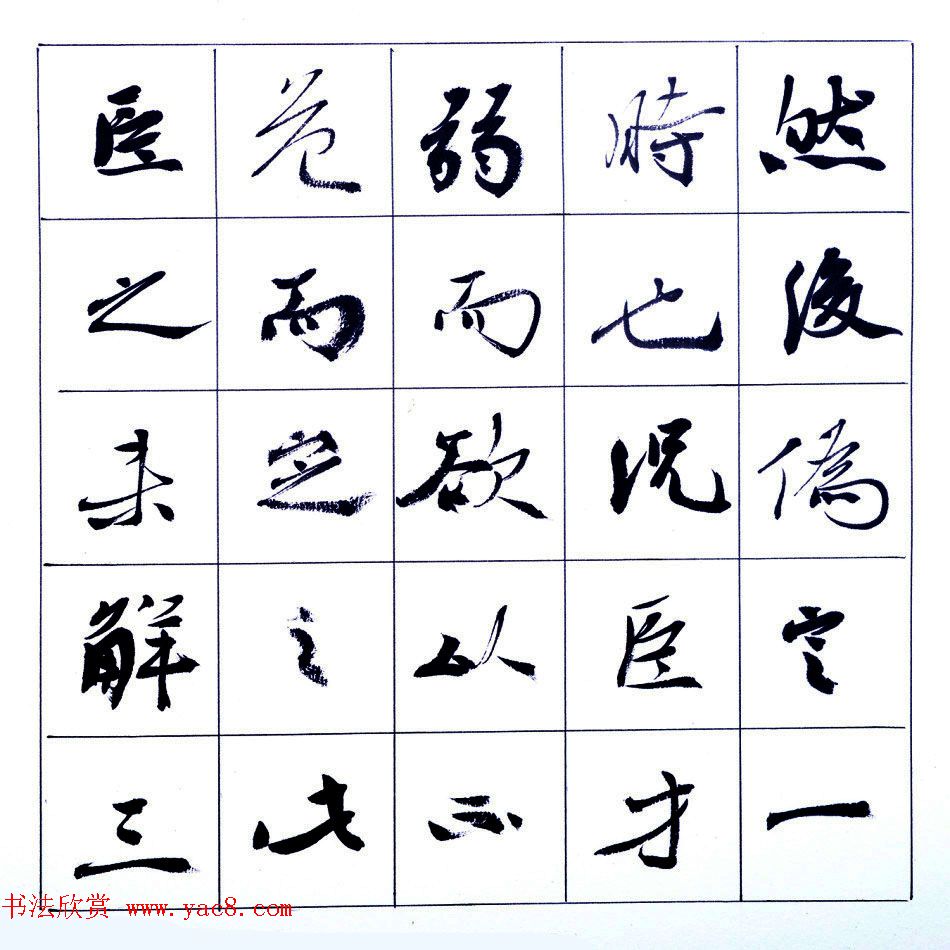 然後偽定一
時也況臣才
弱而欲以不
危而定之此
臣之未解三
书法欣赏 www.yac8.com